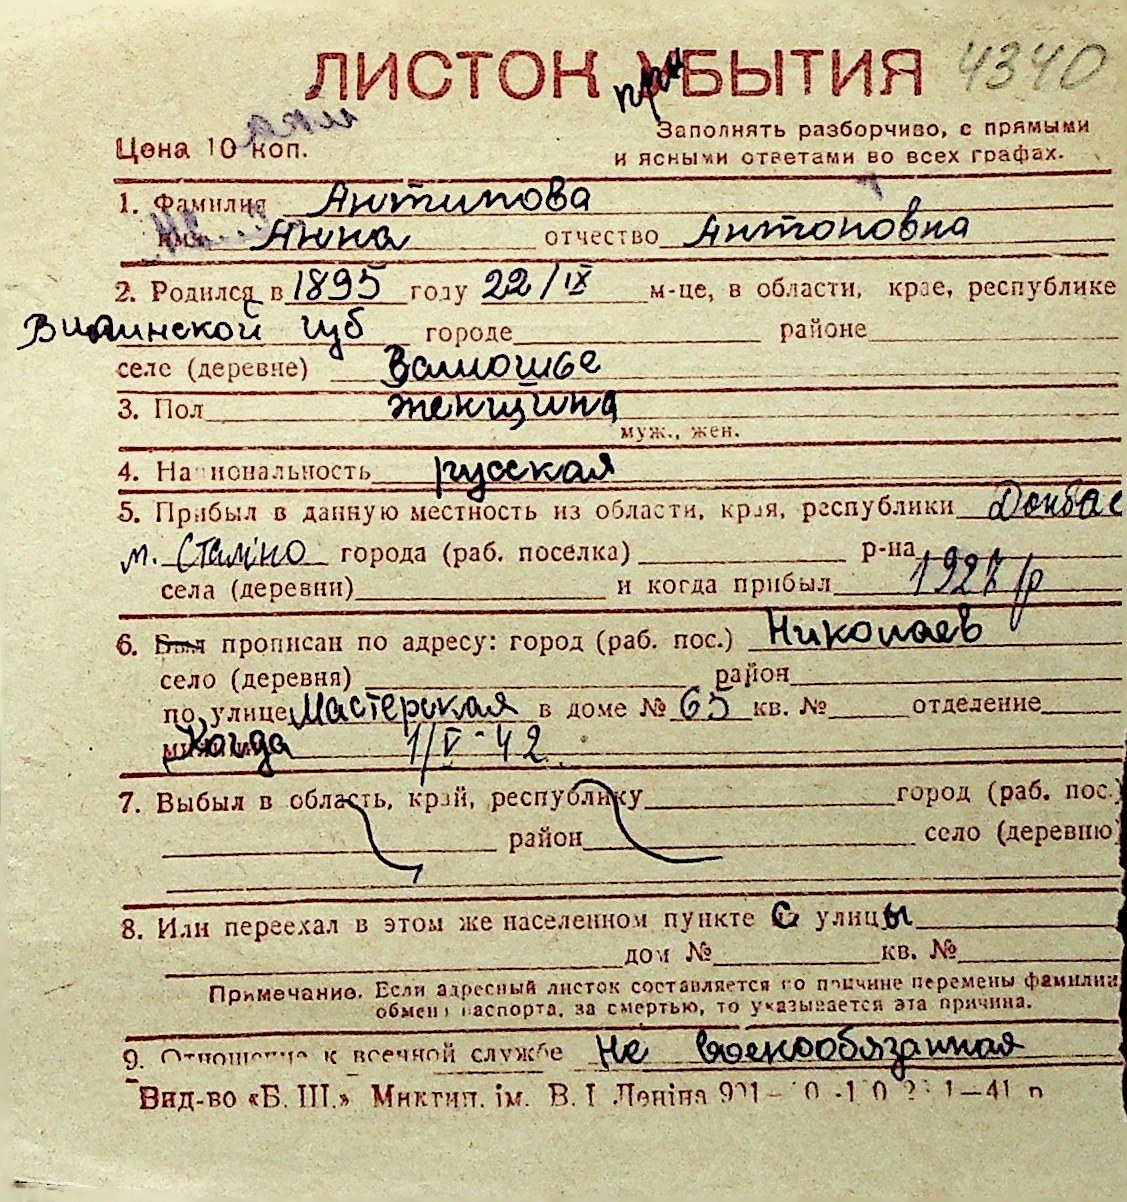 ЛИСТОК прибЫТИЯ 4340
Цена 10 коп.
Заполнять разборчиво, с прямыми
и ясными ответами во всех графах.
1. Фамилия Антипова
имя Анна отчество Антоновна
2. Родился в 1895 году 22/IX м-це, в области, крае, республике
губ городе районе
селе (деревне)
3. Пол женщина
муж., жен.
4. Национальность русская
5. Прибыл в данную местность из области, края, республики Донбас
м. Сталіно города (раб. поселка) р-на
села (деревни) и когда прибыл 1927
6. Был прописан по адресу: город (раб. пос.) Николаев
село (деревня) район
по улице Мастерская в доме № 65 кв. № отделение
Когда 1/V-42
7. Выбыл в область, край, республику город (раб. пос.)
район село (деревню)
8. Или переехал в этом же населенном пункте с улицы
дом № кв. №
Примечание. Если адресный листок составляется по причине перемены фамилии
обмена паспорта, за смертью, то указывается эта причина.
9. Отношение к военной службе Не военнообязанная
Вид-во «Б. Ш.» Миктип. ім. В. І Леніна